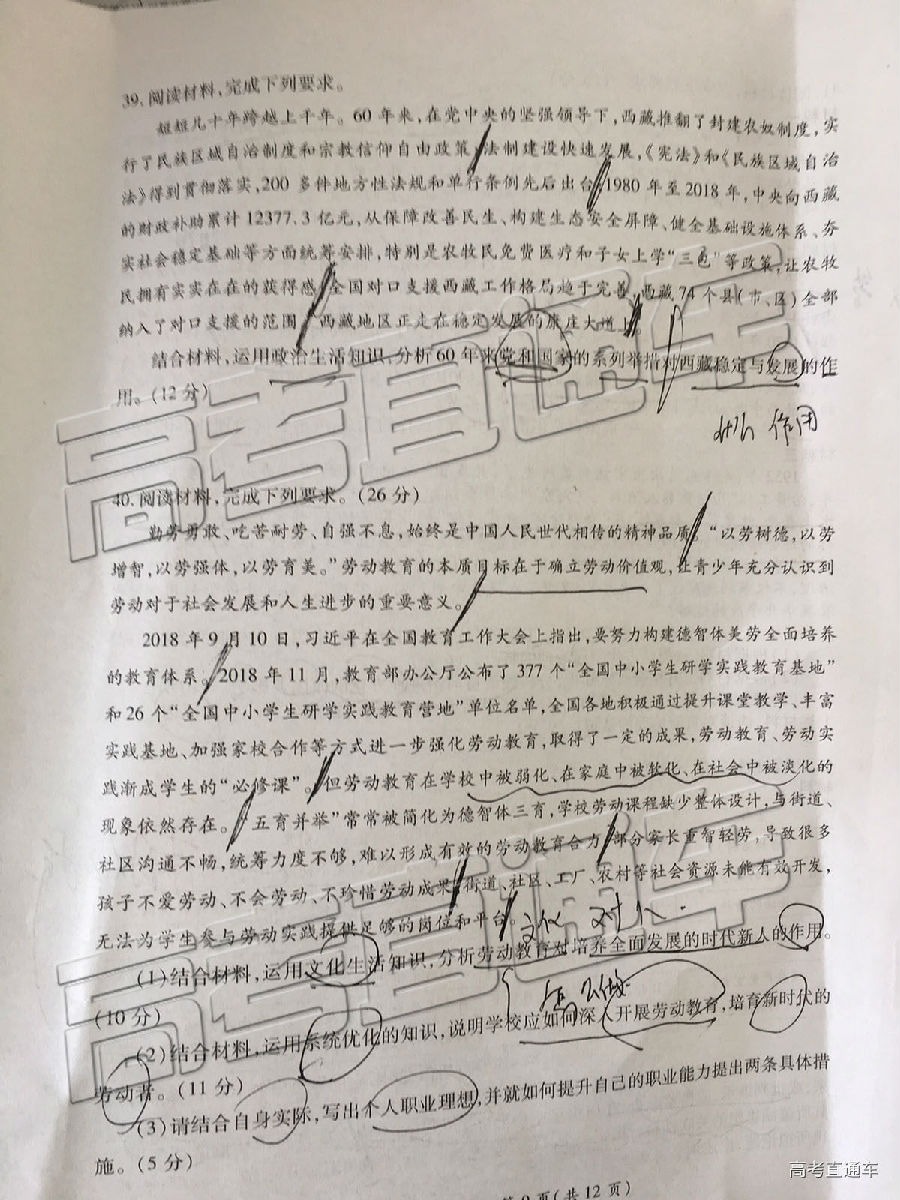 39. 阅读材料,完成下列要求。
短短几十年跨越上千年。60 年来,在党中央的坚强领导下,西藏推翻了封建农奴制度,实
行了民族区域自治制度和宗教信仰自由政策,法制建设快速发展,《宪法》和《民族区域自治
法》得到贯彻落实,200 多件地方性法规和单行条例先后出台,1980 年至 2018 年,中央向西藏
的财政补助累计 12377.3 亿元,从保障改善民生、构建生态安全屏障、健全基础设施体系、夯
实社会稳定基础等方面统筹安排,特别是农牧民免费医疗和子女上学“三包”等政策,让农牧
民拥有实实在在的获得感,全国对口支援西藏工作格局趋于完善,西藏 74 个县(市、区)全部
纳入了对口支援的范围,西藏地区正走在稳定发展的康庄大道上。
结合材料,运用政治生活知识,分析 60 年来党和国家的系列举措对西藏稳定与发展的作
用。(12 分)
作用
40. 阅读材料,完成下列要求。(26 分)
勤劳勇敢、吃苦耐劳、自强不息,始终是中国人民世代相传的精神品质。“以劳树德,以劳
增智,以劳强体,以劳育美。”劳动教育的本质目标在于确立劳动价值观,让青少年充分认识到
劳动对于社会发展和人生进步的重要意义。
2018 年 9 月 10 日,习近平在全国教育工作大会上指出,要努力构建德智体美劳全面培养
的教育体系。2018 年 11 月,教育部办公厅公布了 377 个“全国中小学生研学实践教育基地”
和 26 个“全国中小学生研学实践教育营地”单位名单,全国各地积极通过提升课堂教学、丰富
实践基地、加强家校合作等方式进一步强化劳动教育,取得了一定的成果,劳动教育、劳动实
践渐成学生的“必修课”。但劳动教育在学校中被弱化、在家庭中被软化、在社会中被淡化的
现象依然存在。“五育并举”常常被简化为德智体三育,学校劳动课程缺少整体设计,与街道、
社区沟通不畅,统筹力度不够,难以形成有效的劳动教育合力,部分家长重智轻劳,导致很多
孩子不爱劳动、不会劳动、不珍惜劳动成果,街道、社区、工厂、农村等社会资源未能有效开发,
无法为学生参与劳动实践提供足够的岗位和平台。
文化 对人.
(1)结合材料,运用文化生活知识,分析劳动教育对培养全面发展的时代新人的作用。
(10 分)
(2)结合材料,运用系统优化的知识,说明学校应如何深入开展劳动教育,培育新时代的
劳动者。(11 分)
(3)请结合自身实际,写出个人职业理想,并就如何提升自己的职业能力提出两条具体措
施。(5 分)
页(共 12 页)
高考直通车
高考直通车
高考直通车